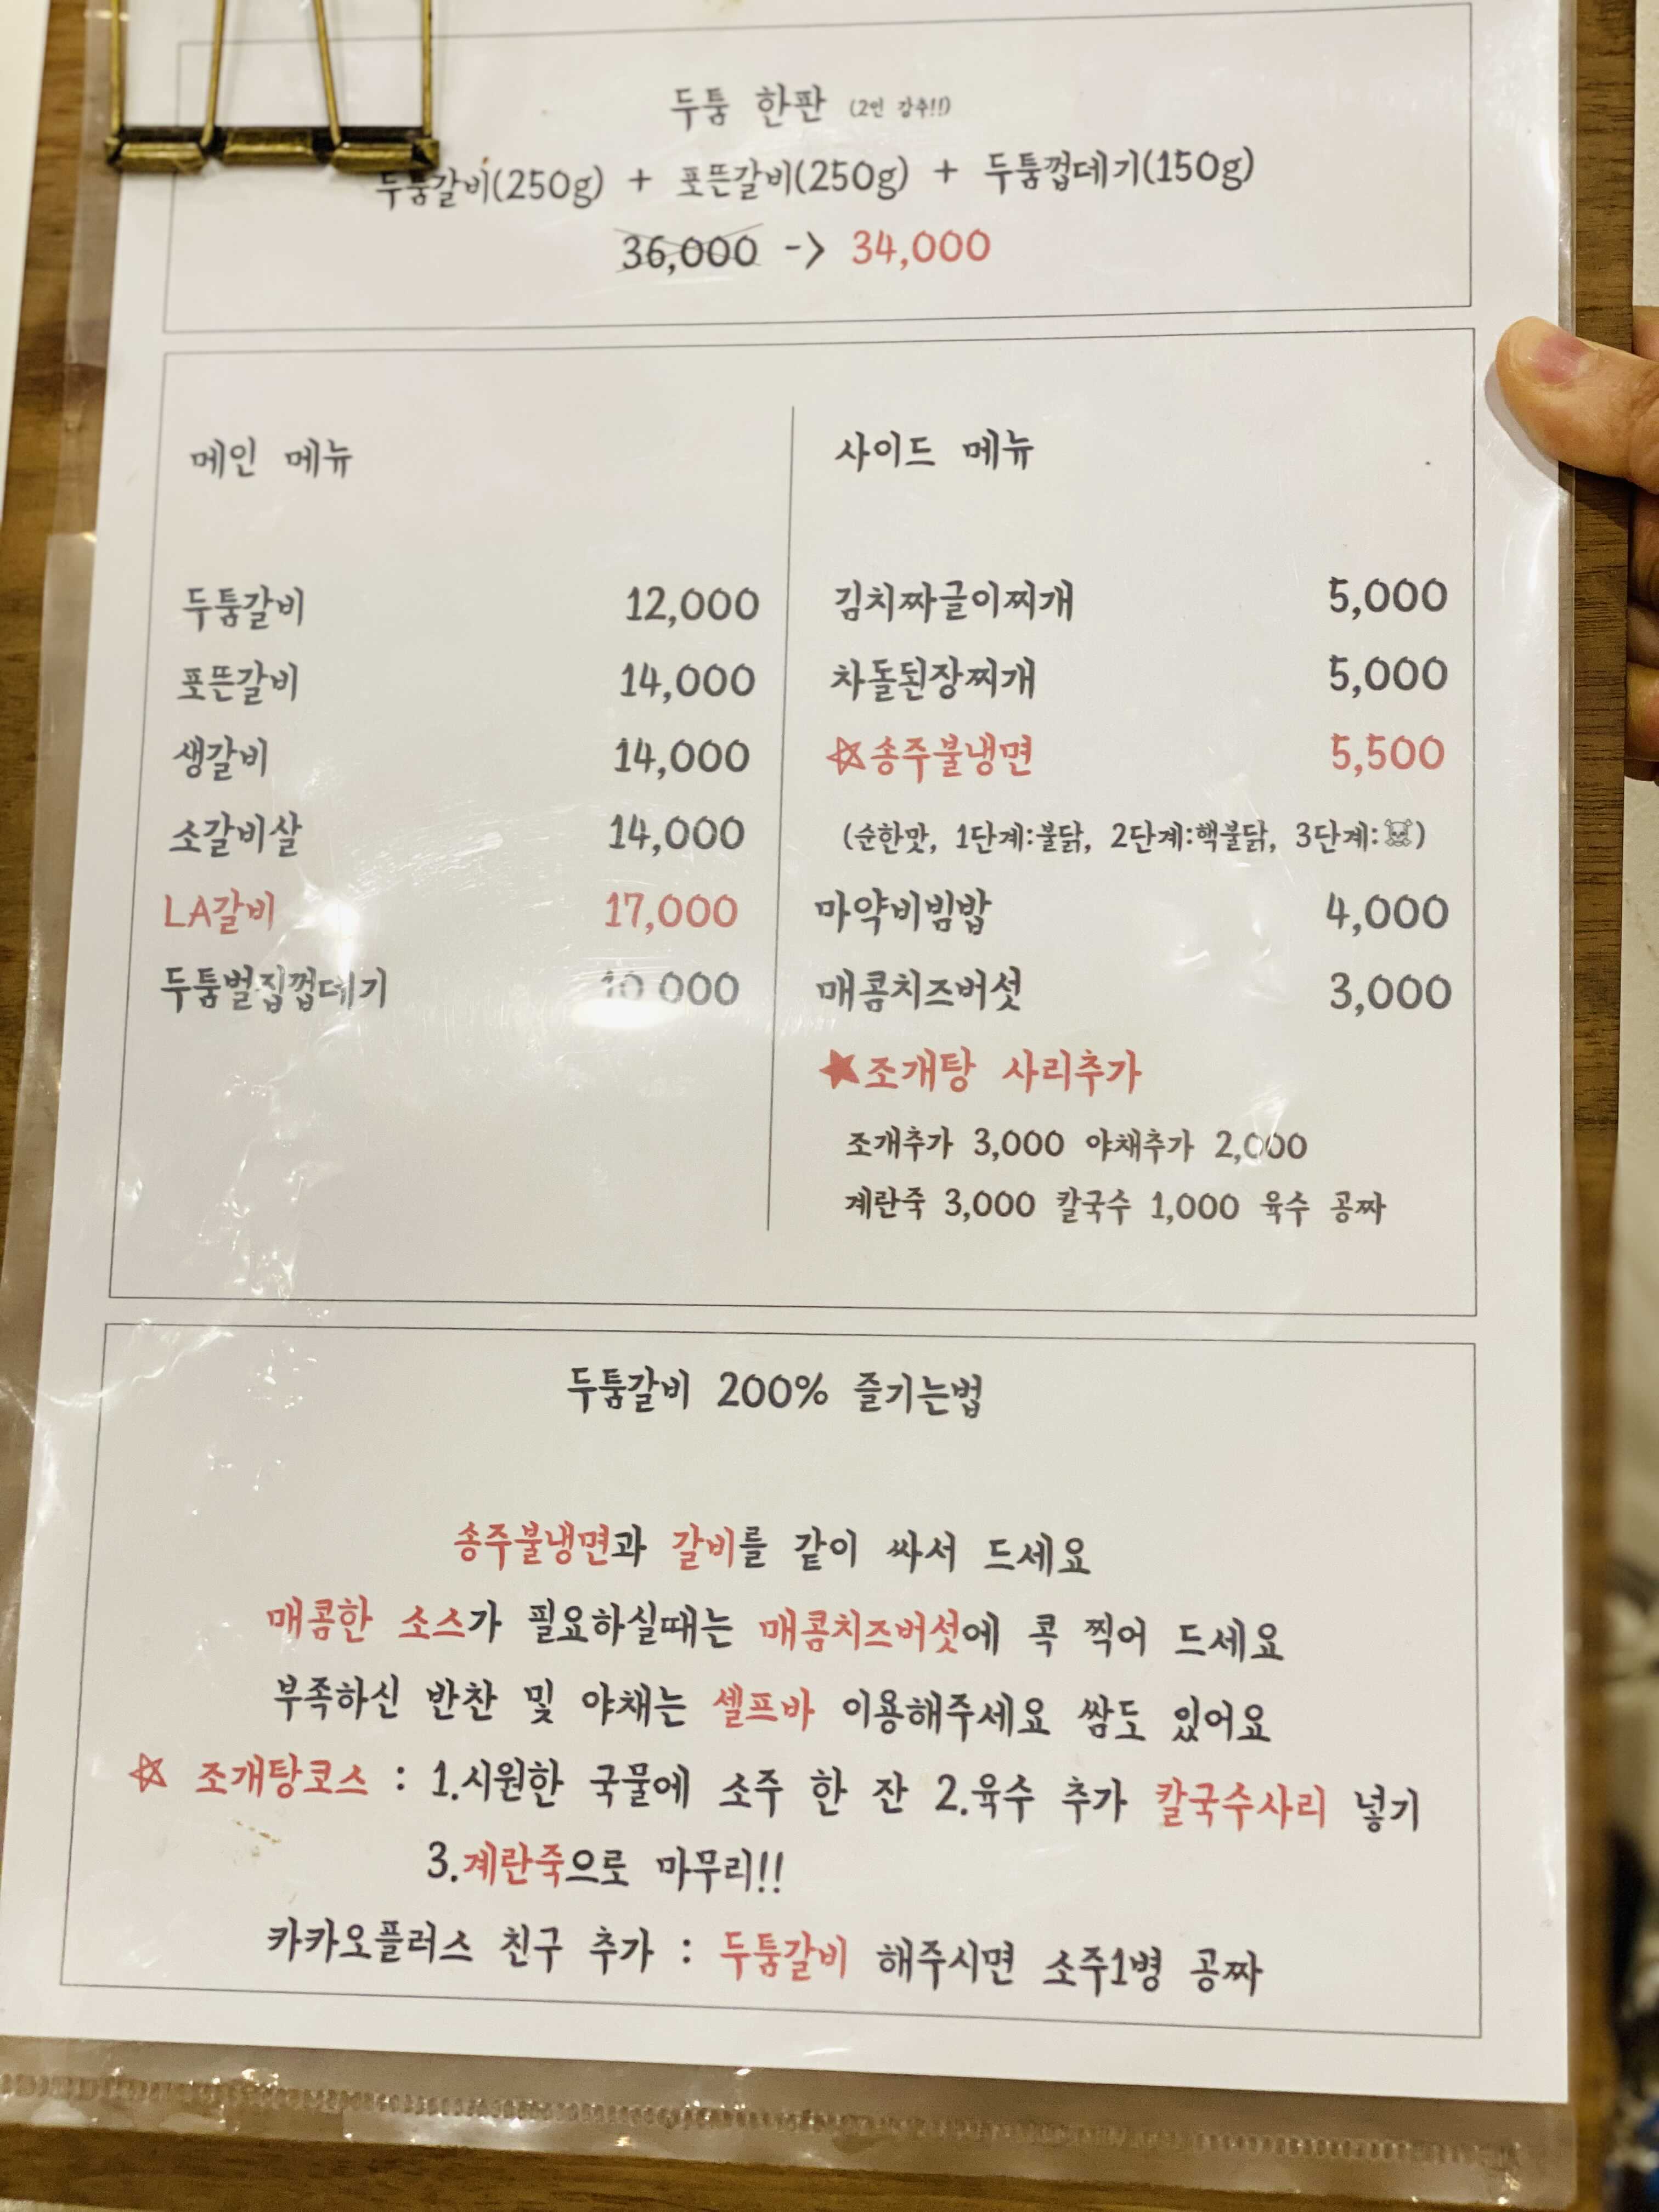 두툼 한판 (2인 강추!!)
두툼갈비(250g) + 포뜬갈비(250g) + 두툼껍데기(150g)
36,000 -> 34,000
메인 메뉴
두툼갈비 12,000
포뜬갈비 14,000
생갈비 14,000
소갈비살 14,000
LA갈비 17,000
두툼벌집껍데기 10,000
사이드 메뉴
김치짜글이찌개 5,000
차돌된장찌개 5,000
☆송주불냉면 5,500
(순한맛, 1단계:불닭, 2단계:핵불닭, 3단계:☠)
마약비빔밥 4,000
매콤치즈버섯 3,000
★조개탕 사리추가
조개추가 3,000 야채추가 2,000
계란죽 3,000 칼국수 1,000 육수 공짜
두툼갈비 200% 즐기는법
송주불냉면과 갈비를 같이 싸서 드세요
매콤한 소스가 필요하실때는 매콤치즈버섯에 콕 찍어 드세요
부족하신 반찬 및 야채는 셀프바 이용해주세요 쌈도 있어요
☆ 조개탕코스 : 1.시원한 국물에 소주 한 잔 2.육수 추가 칼국수사리 넣기
3.계란죽으로 마무리!!
카카오플러스 친구 추가 : 두툼갈비 해주시면 소주1병 공짜